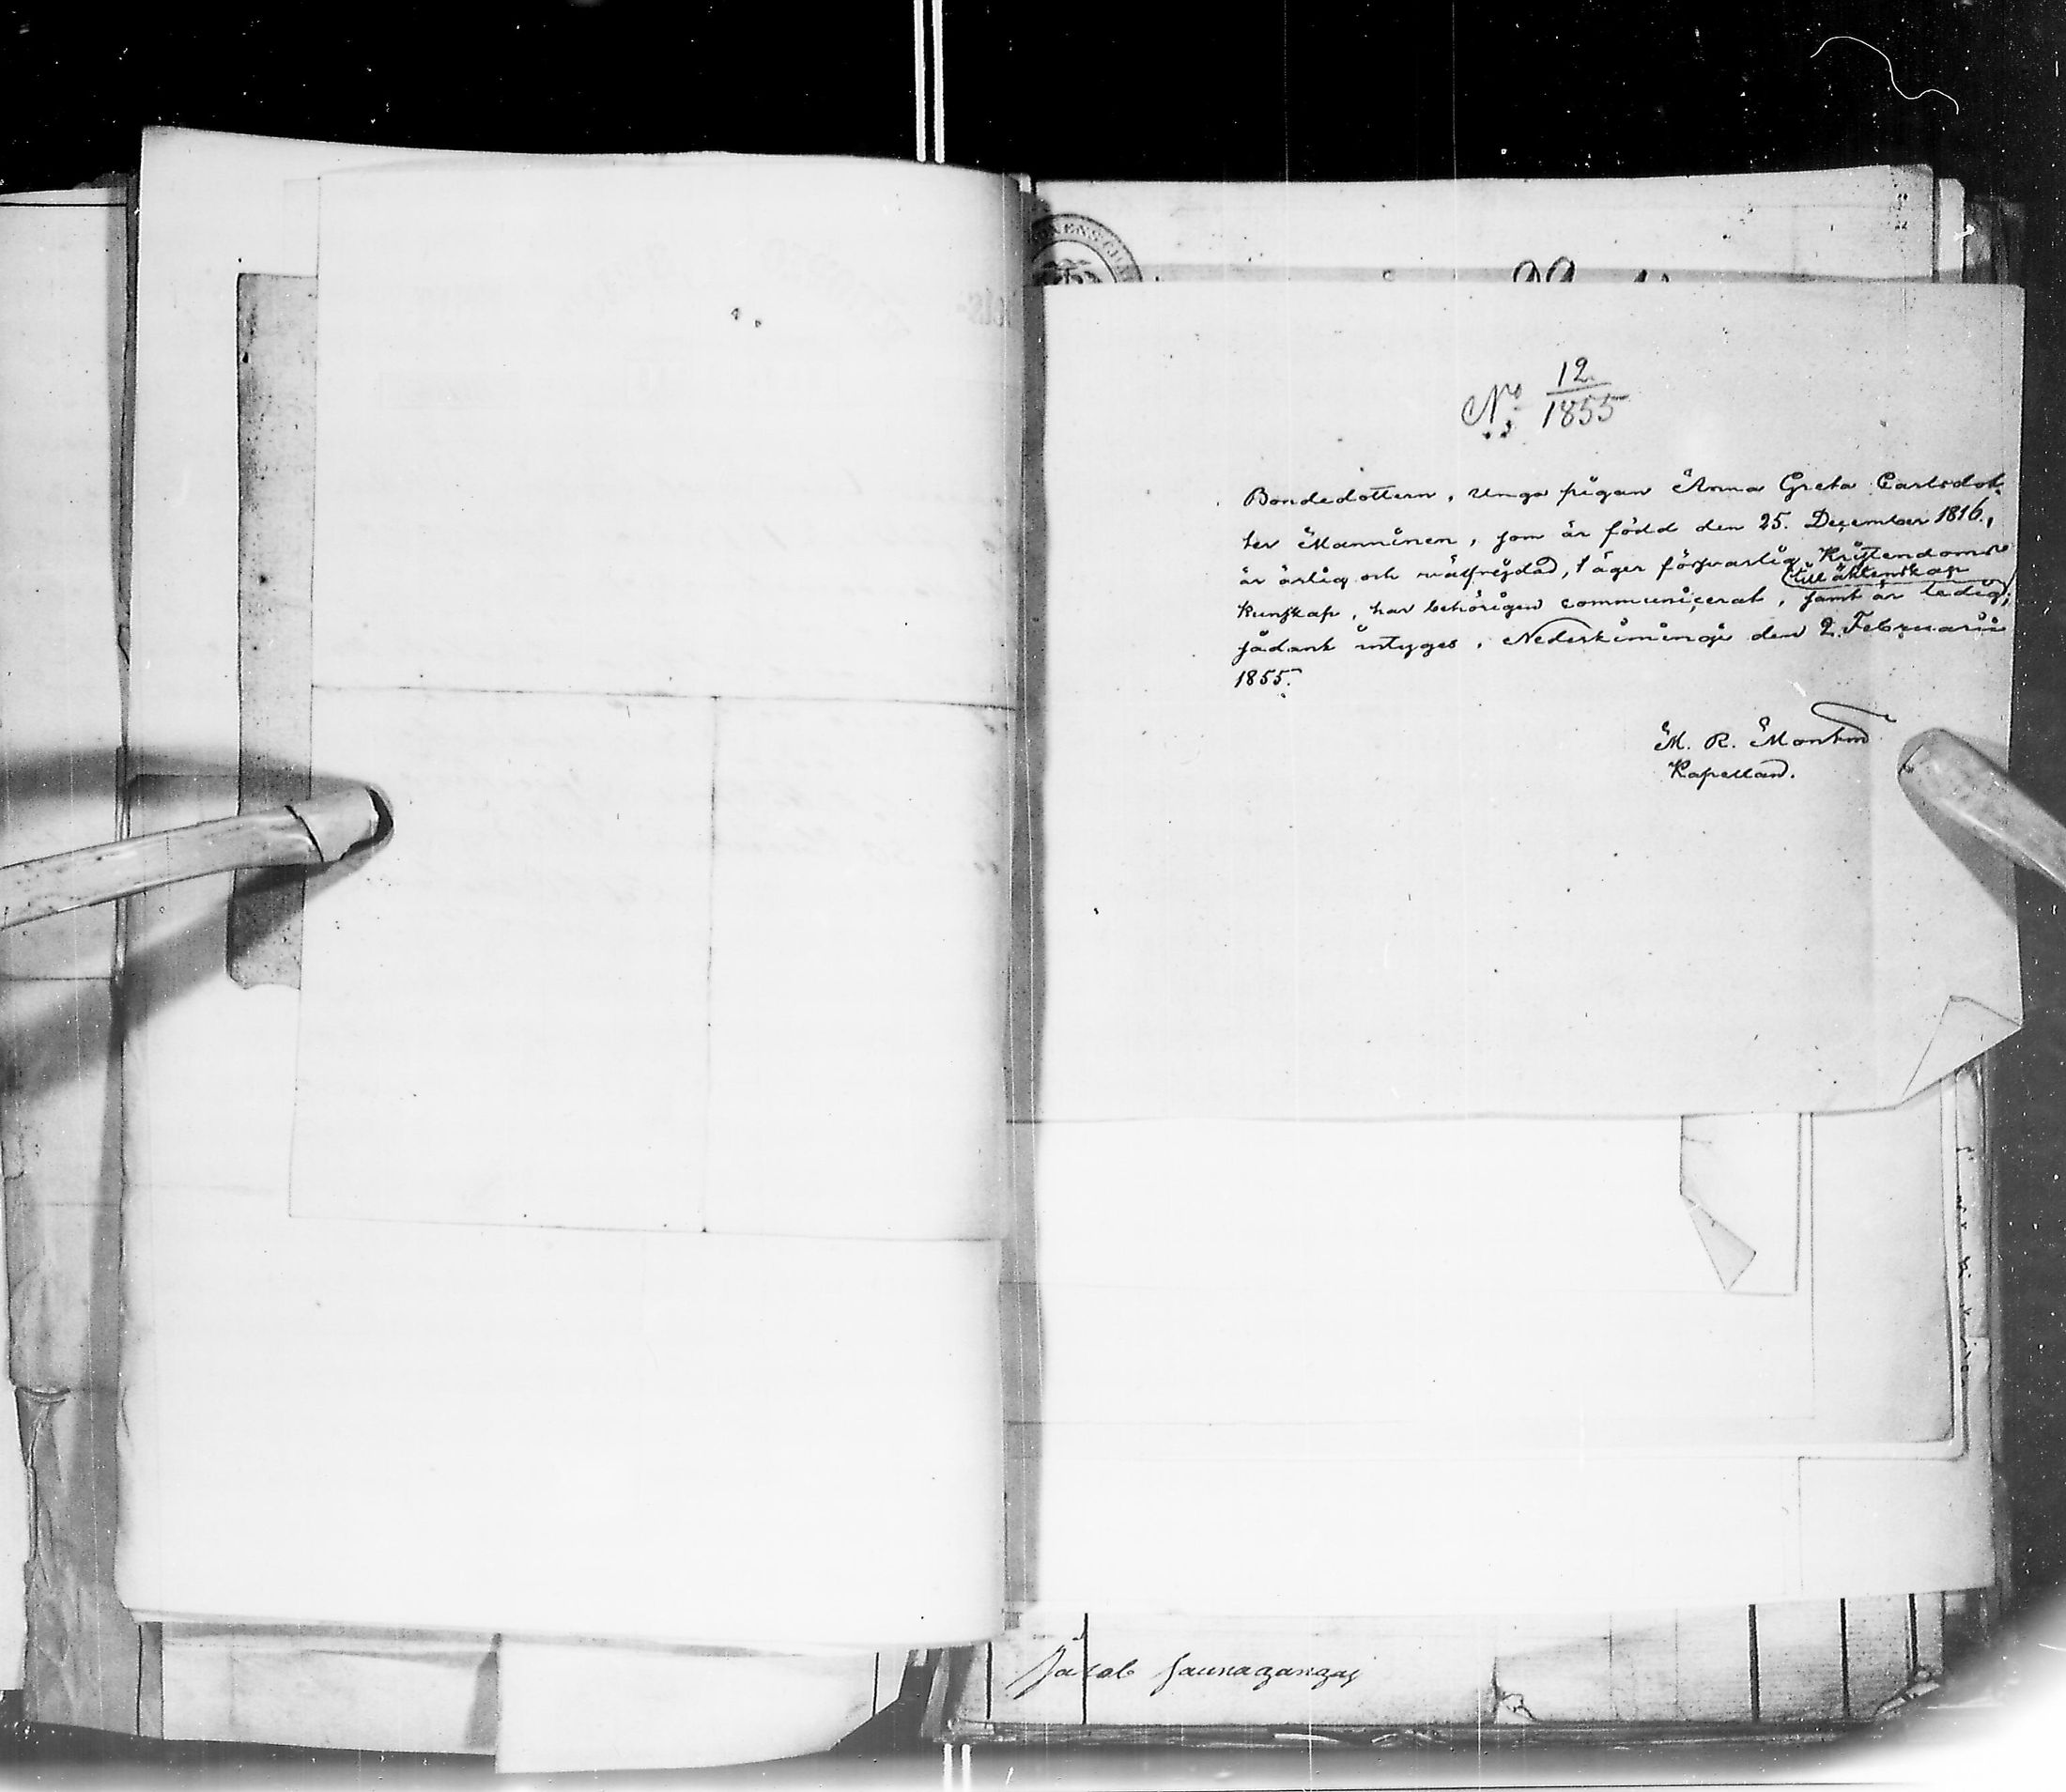 No 12/1855
Bondedottern, unga pigan Anna Greta Carlsdot-
ter Manninen, som är född den 25. December 1816,
är ärlig och välfrejdad, äger försvarlig Kristendoms
till äktenskap
kunskap, har behörigen communicerat, samt är ledig;
sådant intygas, Nederkiminge den 2. Februarii
1855.
M. R. Montin
Kapellan.
Jacob